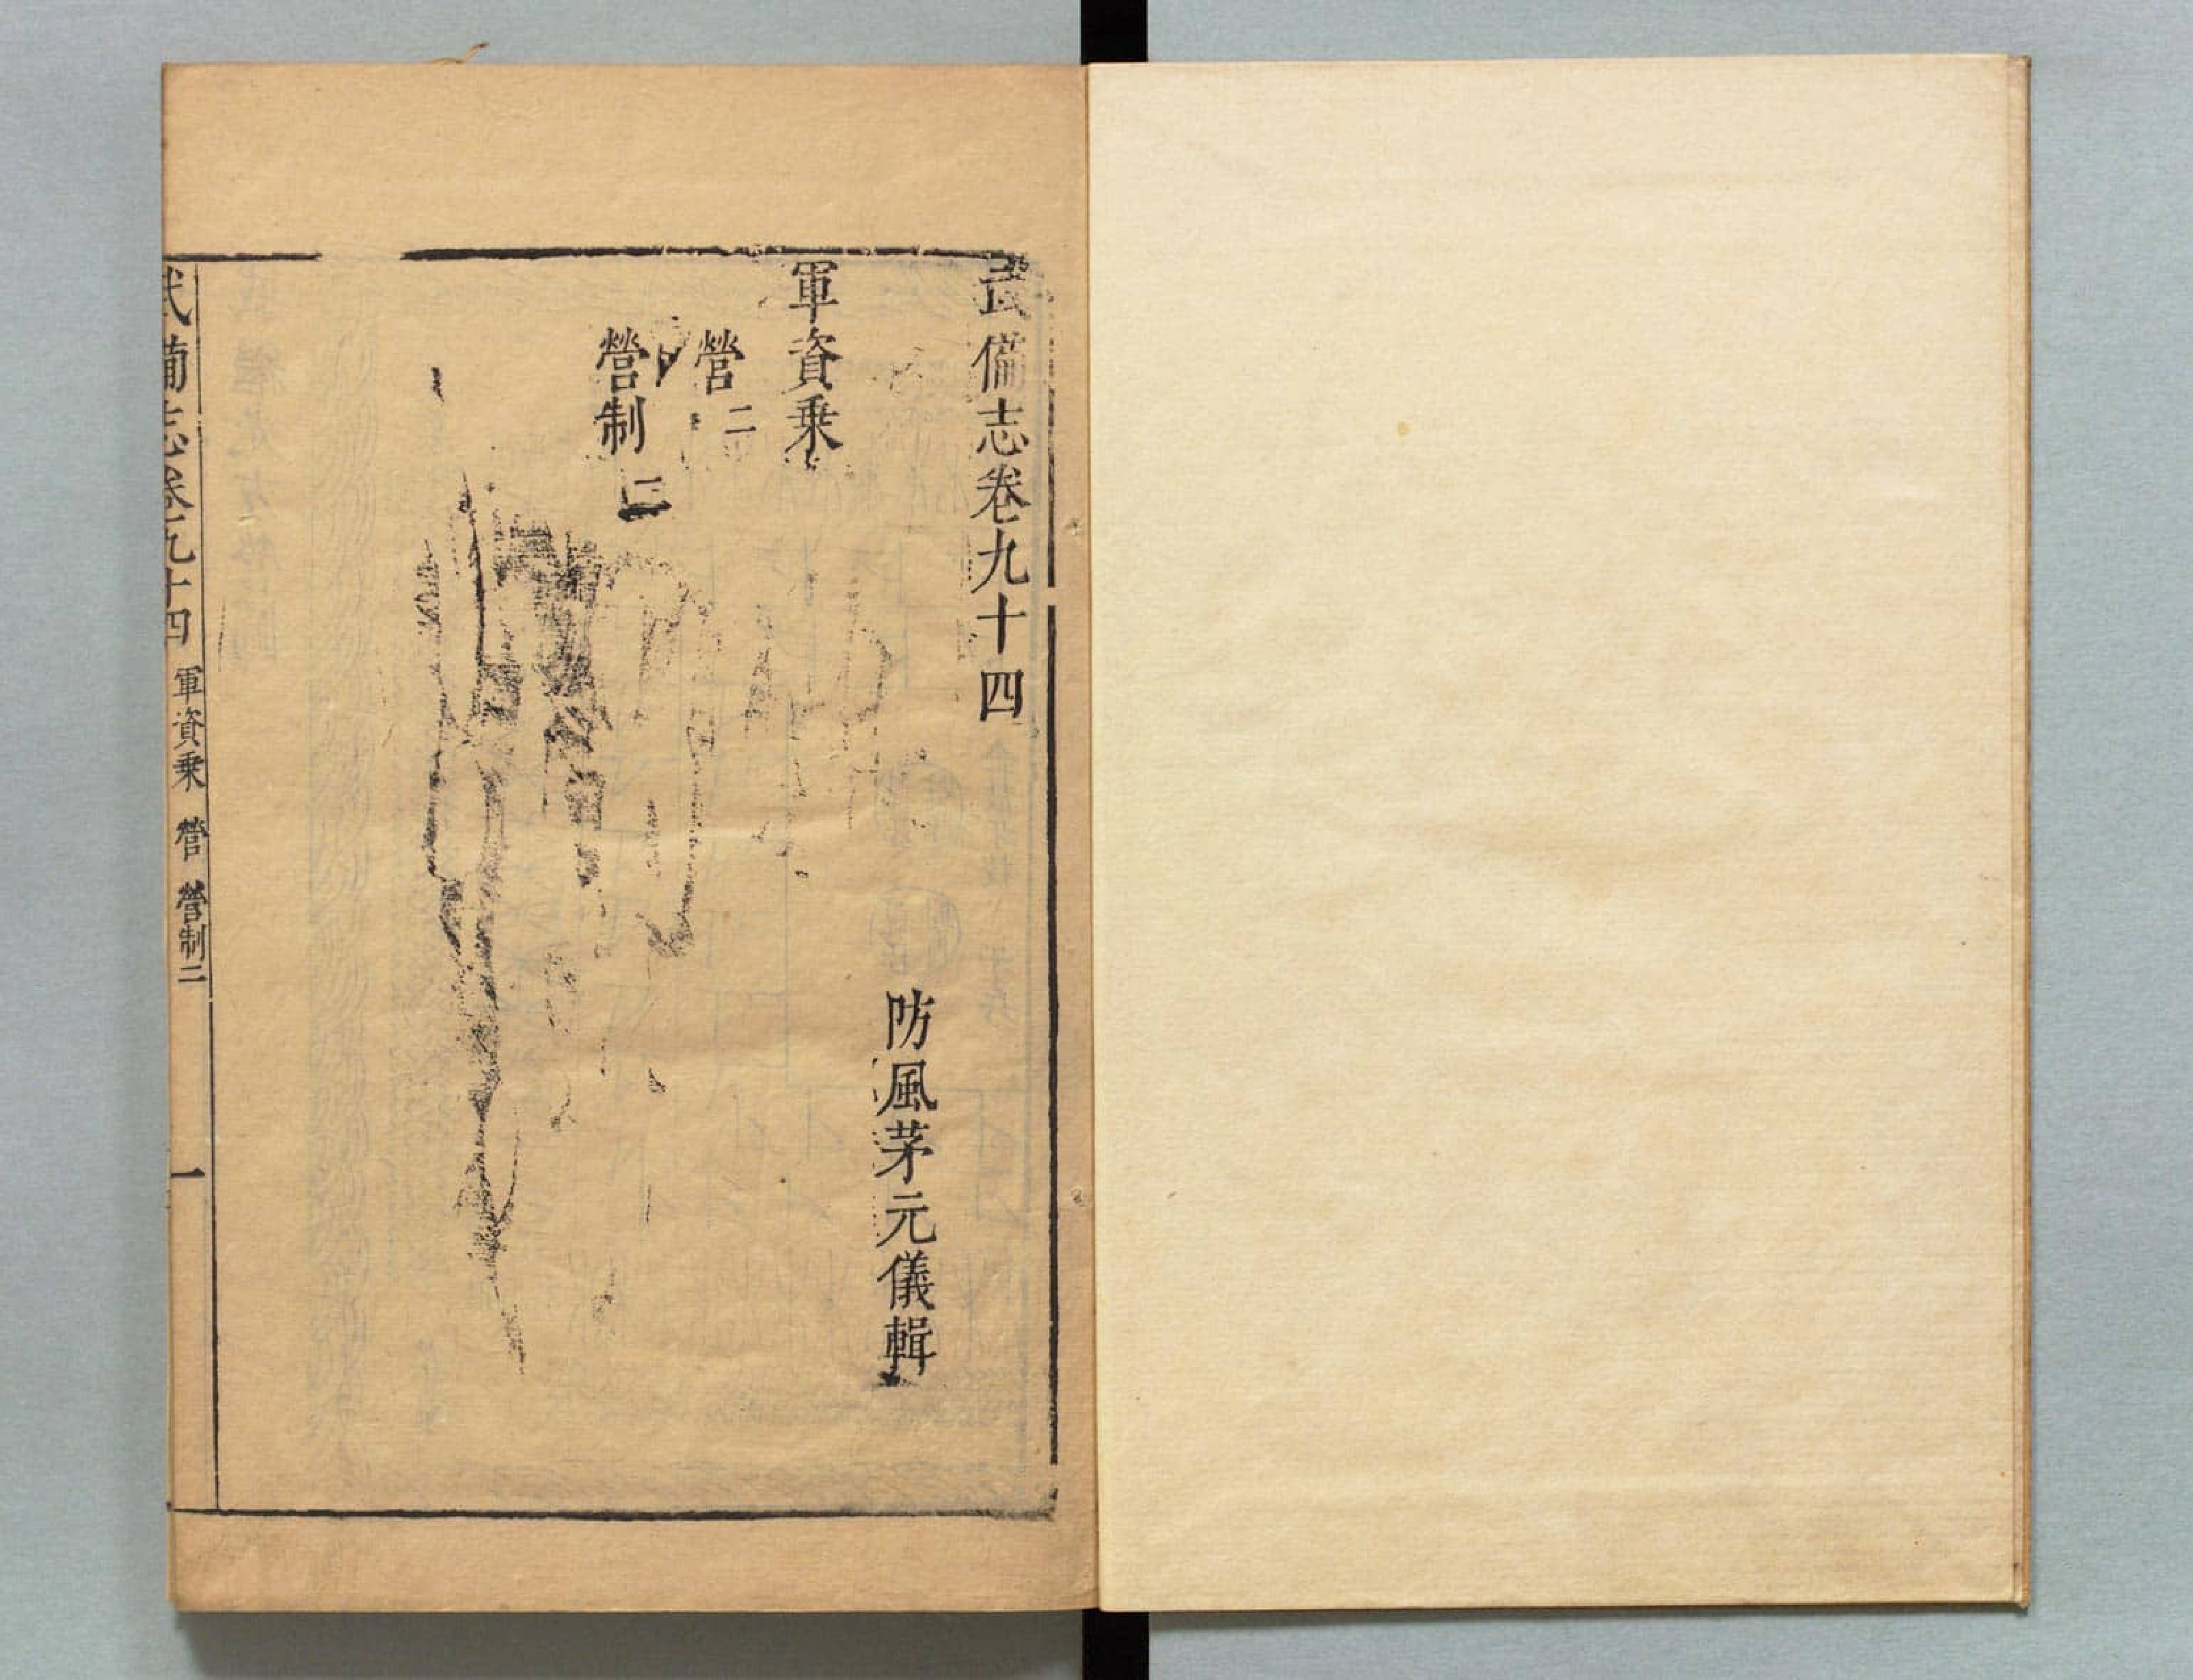 武備志卷九十四
防風茅元儀輯
軍資乗
營二
營制二
武備志卷九十四 軍資乗 營 營制二 一